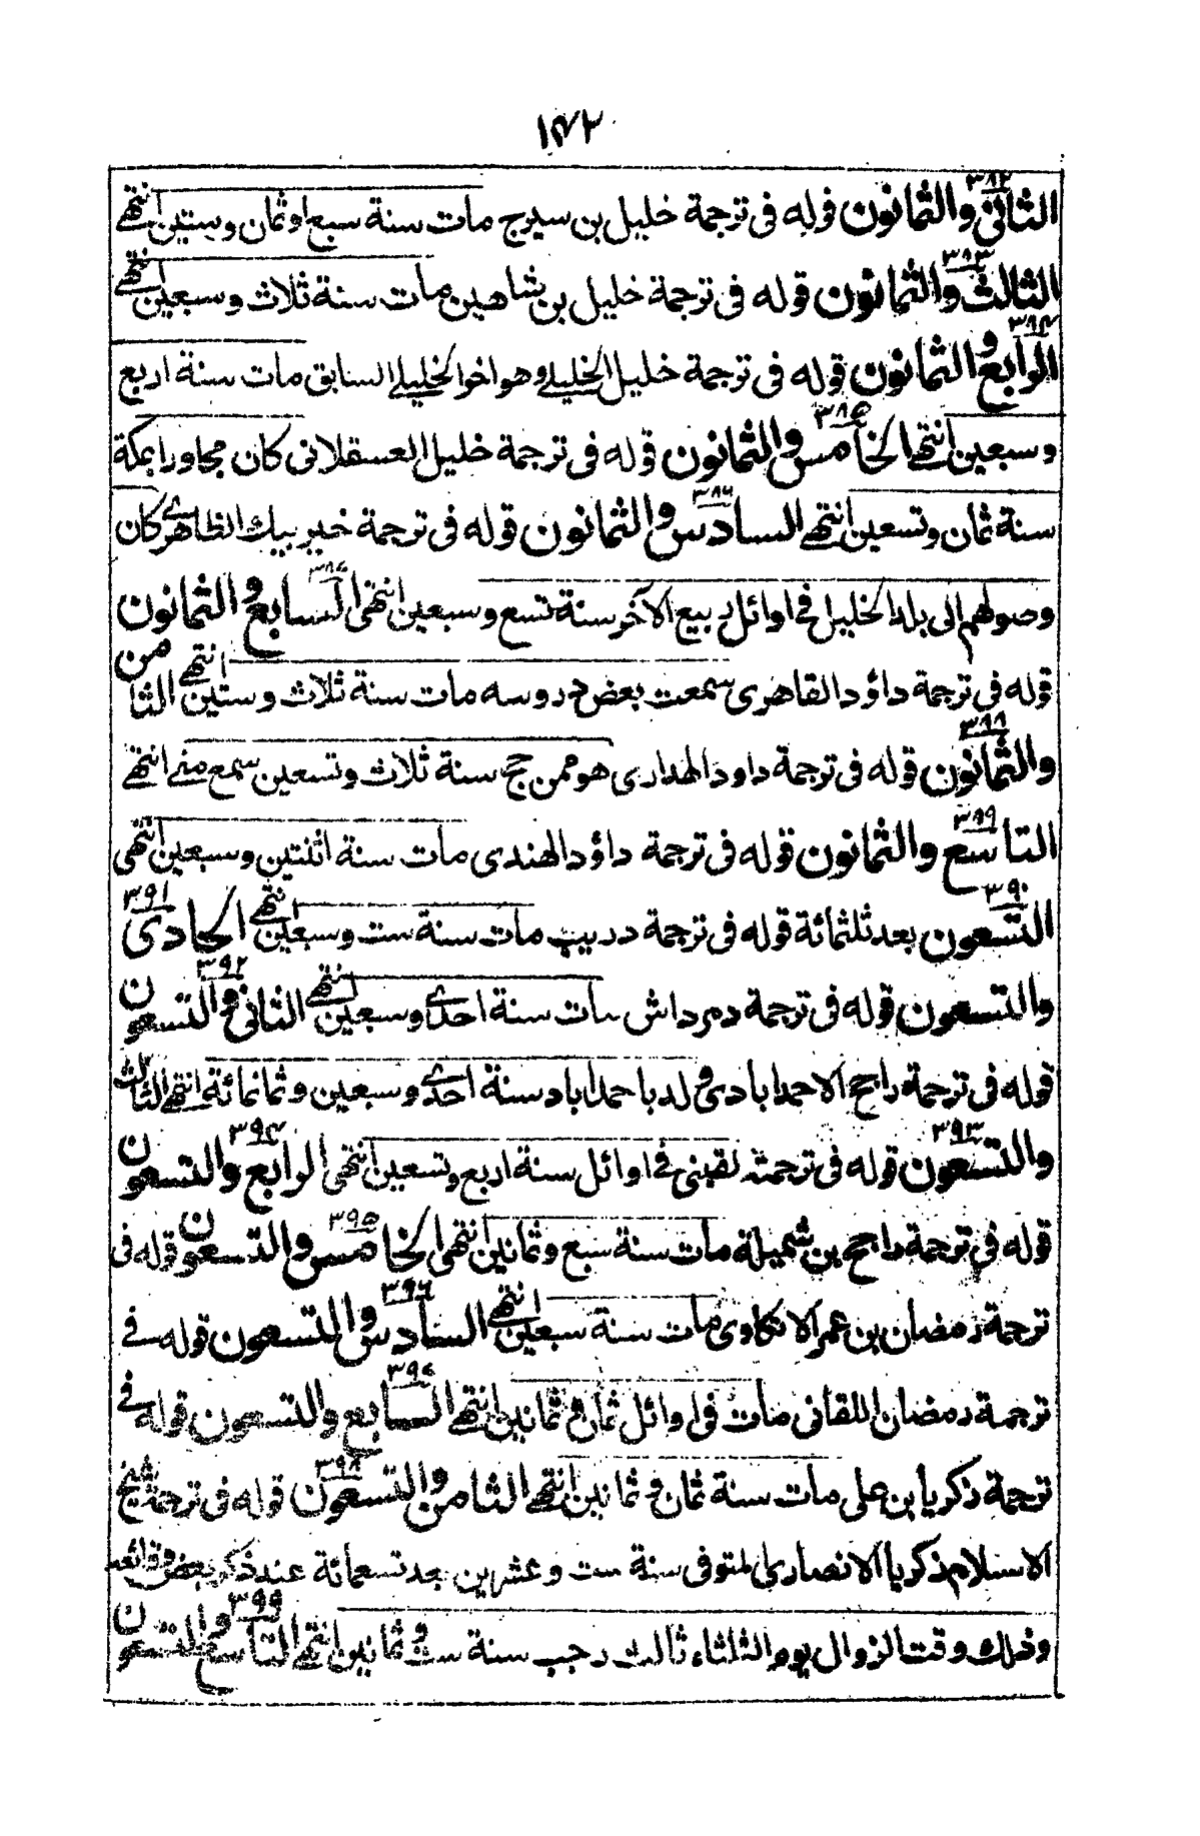 ١٤٢
٣٨٢
الثاني والثمانون قوله فى ترجمة خليل بن سيرج مات سنة سبع او ثمان وستين انتهى
٣٨٣
الثالث والثمانون قوله فى ترجمة خليل بن شاهين مات سنة ثلاث وسبعين انتهى
٣٨٤
الرابع والثمانون قوله فى ترجمة خليل الخليلى وهو اخو الخليلى السابق مات سنة اربع
٣٨٥
وسبعين انتهى الخامس والثمانون قوله فى ترجمة خليل العسقلانى كان مجاورا بمكة
٣٨٦
سنة ثمان وتسعين انتهى السادس والثمانون قوله فى ترجمة خير بيك الظاهرى كان
٣٨٧
وصولهم الى بلد الخليل فى اوائل ربيع الآخر سنة تسع وسبعين انتهى السابع والثمانون
قوله فى ترجمة داؤد القاهرى سمعت بعض دروسه مات سنة ثلاث وستين انتهى الثامن
٣٨٨
والثمانون قوله فى ترجمة داود الهدارى هو ممن حج سنة ثلاث وتسعين سمع منى انتهى
٣٨٩
التاسع والثمانون قوله فى ترجمة داؤد الهندى مات سنة اثنتين وسبعين انتهى
٣٩٠ ٣٩١
التسعون بعد ثلثمائة قوله فى ترجمة دريب مات سنة ست وسبعين انتهى الحادى
٣٩٢
والتسعون قوله فى ترجمة دمرداش مات سنة احدى وسبعين انتهى الثانى والتسعون
قوله فى ترجمة راجح الاحمدابادى ولد باحمدآباد سنة احدى وسبعين وثمانمائة انتهى الثالث
٣٩٣ ٣٩٤
والتسعون قوله فى ترجمته لقينى فى اوائل سنة اربع وتسعين انتهى الرابع والتسعون
٣٩٥
قوله فى ترجمة راجح بن شميلة مات سنة سبع وثمانين انتهى الخامس والتسعون قوله فى
٣٩٦
ترجمة رمضان بن عمر الاتكاوى مات سنة سبعين انتهى السادس والتسعون قوله فى
٣٩٧
ترجمة رمضان اللقانى مات فى اوائل ثمان وثمانين انتهى السابع والتسعون قوله فى
٣٩٨
ترجمة زكريا بن على مات سنة ثمان وثمانين انتهى الثامن والتسعون قوله فى ترجمة شيخ
الاسلام زكريا الانصارى المتوفى سنة ست وعشرين بعد تسعمائة عند ذكر بعض وقائعه
٣٩٩
وذلك وقت الزوال يوم الثلثاء ثالث رجب سنة ست وثمانين انتهى التاسع والتسعون